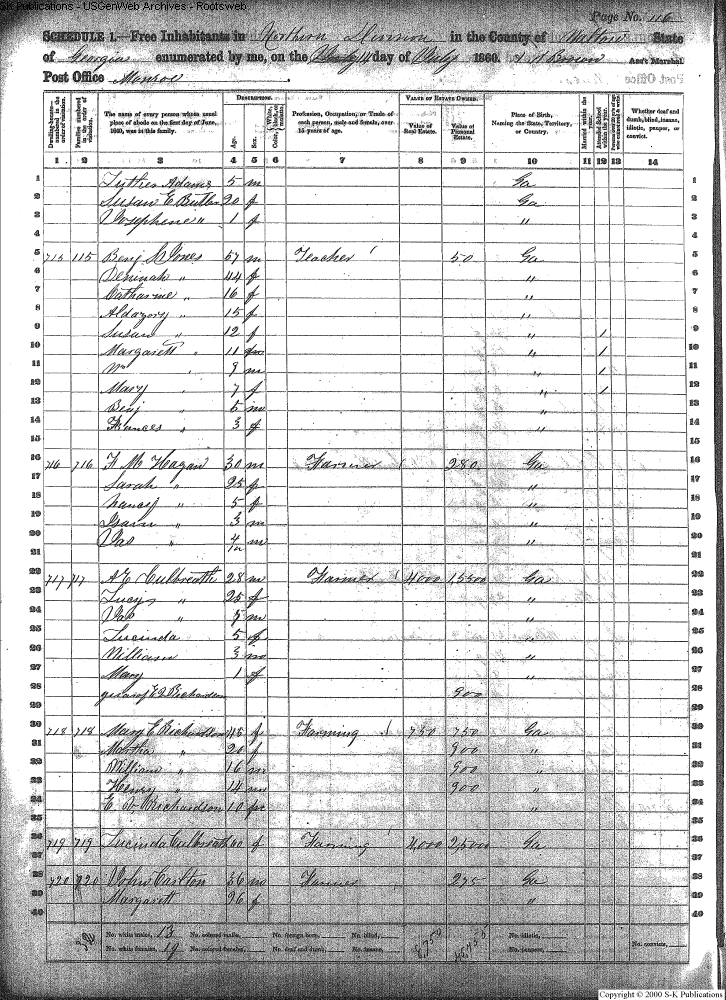 S-K Publications - USGenWeb Archives - Rootsweb
Page No. 116
SCHEDULE 1.—Free Inhabitants in Northern Division in the County of Walton State
of Georgia enumerated by me, on the day of July 1860. Brown Ass't Marshal
Post Office Monroe
Dwelling-houses—numbered in the order of visitation.
Families numbered in the order of visitation.
The name of every person whose usual place of abode on the first day of June, 1860, was in this family.
DESCRIPTION.
Age.
Sex.
Color, White, black, or mulatto.
Profession, Occupation, or Trade of each person, male and female, over 15 years of age.
VALUE OF ESTATE OWNED.
Value of Real Estate.
Value of Personal Estate.
Place of Birth, Naming the State, Territory, or Country.
Married within the year.
Attended School within the year.
Whether deaf and dumb, blind, insane, idiotic, pauper, or convict.
1 2 3 4 5 6 7 8 9 10 11 12 13 14
1 Luther Adams 5 m Ga 1
2 Susan E Butler 20 f Ga 2
3 Josephene " 1 f " 3
4 4
5 715 Benj Jones 57 m Teacher 50 Ga 5
6 " 44 f " 6
7 Catharine " 16 f " 7
8 " 15 f " 8
9 Susan " 12 f " / 9
10 Margarett " 11 " / 10
11 Wm " 9 m " / 11
12 Mary " 7 f " / 12
13 Benj " 5 m " 13
14 Frances " 3 f " 14
15 15
16 716 716 F M Hagan 30 m Farmer 280 Ga 16
17 Sarah " 25 f " 17
18 Nancy " 5 f " 18
19 " 3 m " 19
20 Jas " 4/12 m " 20
21 21
22 717 717 Culbreath 28 m Farmer 4000 Ga 22
23 Lucy " 25 f " 23
24 Jas " 7 m " 24
25 Lucinda 5 f " 25
26 William 3 m " 26
27 Mary 1 f " 27
28 Richardson 900 28
29 29
30 718 718 Mary E Richardson 45 f Farming 750 750 Ga 30
31 Martha " 20 f 900 " 31
32 William " 16 m 900 " 32
33 Henry " 14 m 900 " 33
34 Richardson 10 " 34
35 35
36 719 719 Lucinda Culbreath 60 f Farming 4,000 Ga 36
37 37
38 720 720 John Carlton 36 m Farmer 275 Ga 38
39 Margarett 26 f " 39
40 40
No. white males, 13 No. colored males, No. foreign born, No. blind, No. idiotic,
No. white females, 19 No. colored females, No. deaf and dumb, No. insane, No. paupers, No. convicts,
8,750
Copyright © 2000 S-K Publications